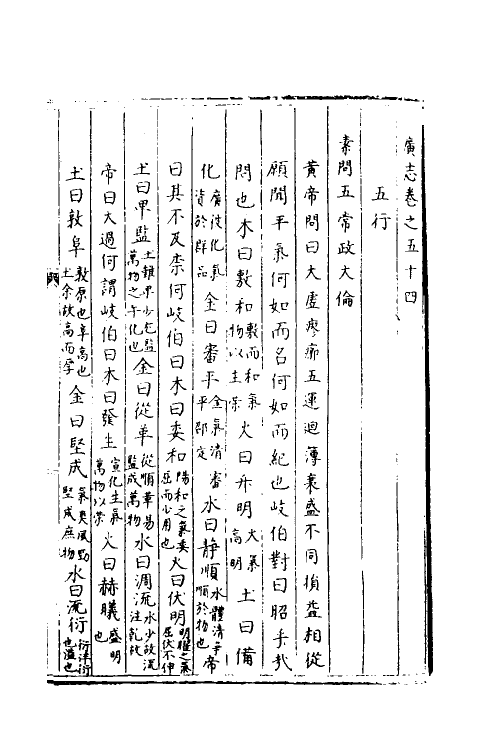 廣志卷之五十四
五行
素問五常政大倫
黃帝問曰大虛寥廓五運迴薄衰盛不同損益相從
願聞平氣何如而名何如而紀也岐伯對曰昭乎哉
問也木曰敷和敷而和氣物以生榮火曰升明火氣高明土曰備
化廣彼化氣資於群品金曰審平金氣清審平郡定水曰靜順水體清平順於物也帝
曰其不及柰何岐伯曰木曰委和陽和之氣委屈而少用也火曰伏明明曜之氣屈伏不伸
土曰卑監土雖卑少尤監萬物之午化也金曰從革從順革易監成萬物水曰涸流水少故流注乾故
帝曰大過何謂岐伯曰木曰發生宣化生氣萬物以榮火曰赫曦盛明也
土曰敦阜敦厚也阜高也土余故高而厚金曰堅成氣爽風勁堅成庶物水曰流衍衍泮衍也溢也